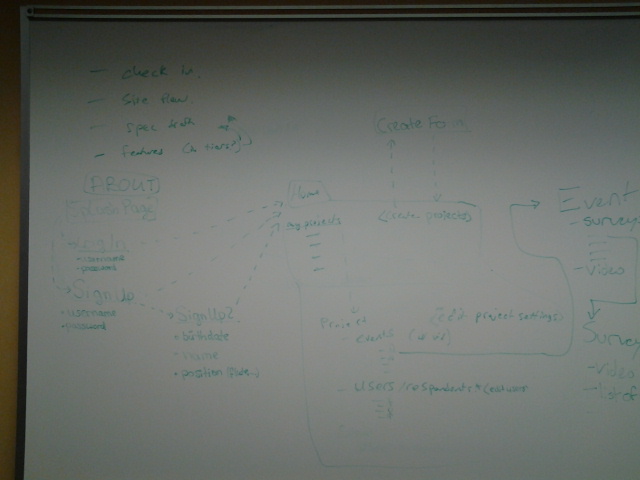 - check in.
- Site Flow
- spec draft
- features (in tiers)
ABOUT
Log In
- username
- password
SignUp
- username
- password
SignUp2
- birthdate
- name
- position
Home
my projects
Create Form
(create projects)
Project
- events
(edit project settings)
- users/respondents +
Event
- survey
- video
Survey
- video
- list of